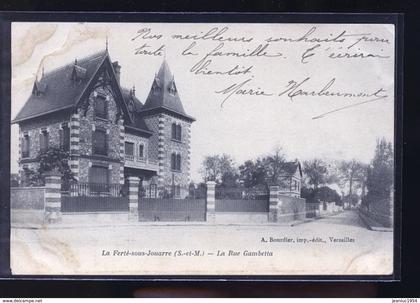 Nos meilleurs souhaits pour
toute la famille. T'écrirai
bientôt
Marie
A. Bourdier, imp.-édit., Versailles
La Ferté-sous-Jouarre (S.-et-M.) — La Rue Gambetta
http://www.delcampe.net
jeanluc1954